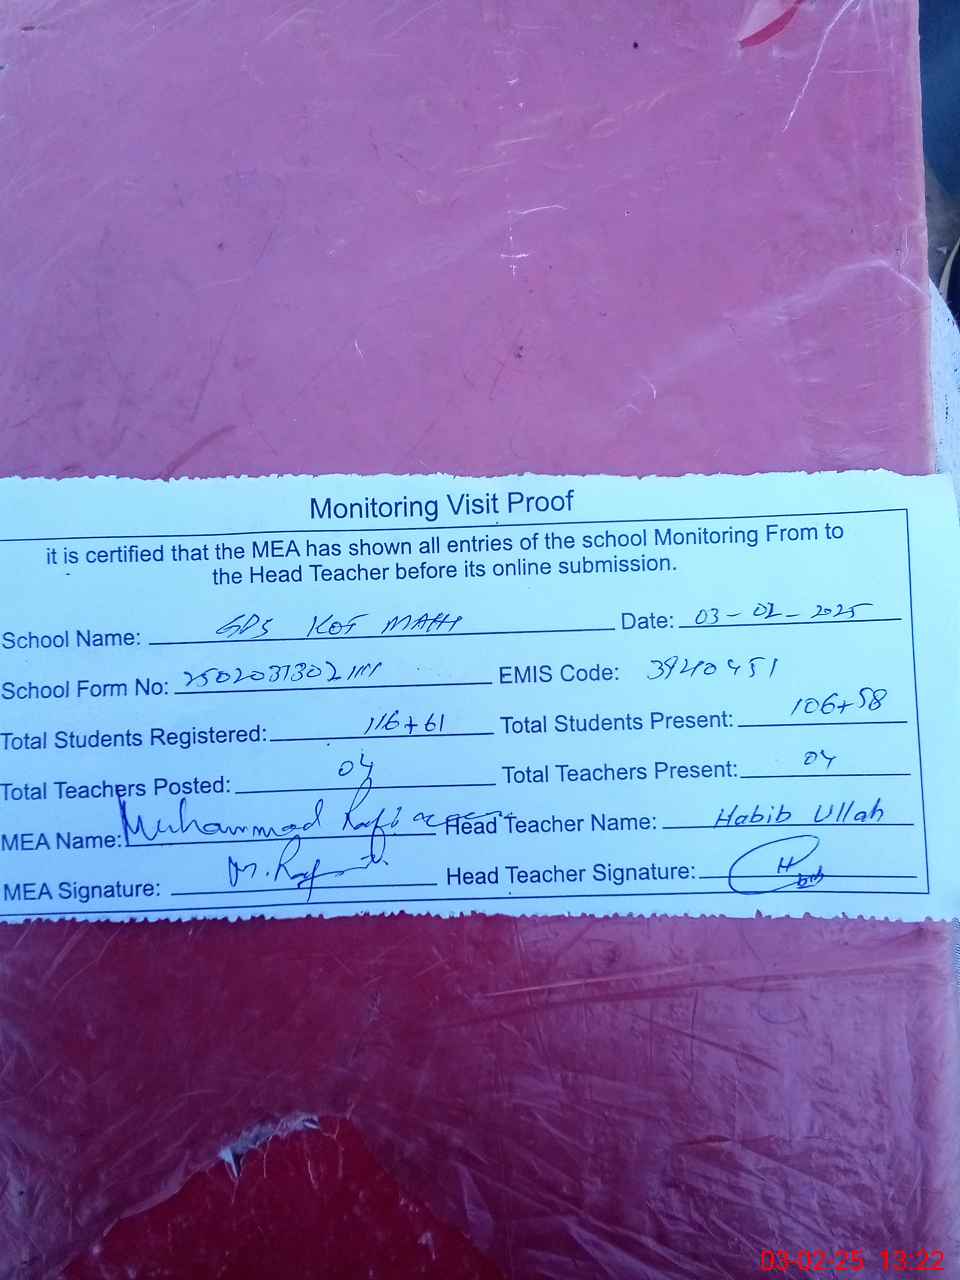 Monitoring Visit Proof
it is certified that the MEA has shown all entries of the school Monitoring From to
the Head Teacher before its online submission.
School Name: GPS KOT MATH Date: 03-02-2025
School Form No: EMIS Code: 39210451
Total Students Registered: 116+61 Total Students Present: 106+58
Total Teachers Posted: 04 Total Teachers Present: 04
MEA Name: Muhammad Head Teacher Name: Habib Ullah
MEA Signature: Head Teacher Signature:
03-02-25 13:22